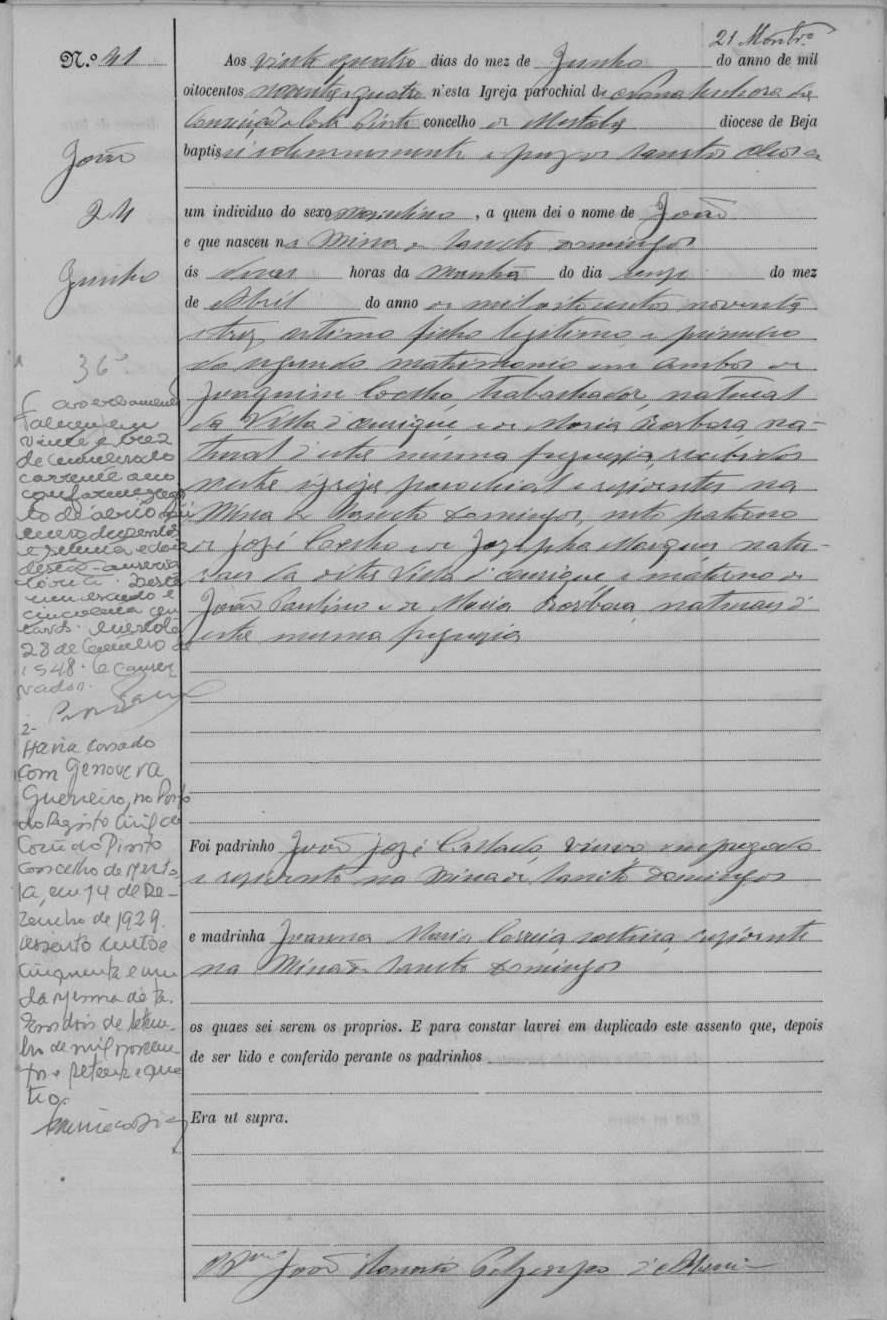 21
N.º 41
Aos vinte quatro dias do mez de Junho do anno de mil
oitocentos noventa e quatro n'esta Igreja parochial de Nossa Senhora da
Conceição concelho de Mertola diocese de Beja
baptisei solemnemente e puz os sanctos oleos a
João
24
Junho
um individuo do sexo masculino, a quem dei o nome de João
e que nasceu na Mina de Sancto Domingos
ás horas da manhã do dia do mez
de Abril do anno de mil oitocentos noventa
e trez, filho legitimo e primeiro
do segundo matrimonio em ambos de
Joaquim Coelho, trabalhador, natural
da Villa d'Ourique e de Maria Barbara, na-
tural d'esta mesma freguezia, recebidos
nesta igreja parochial e residentes na
Mina de Sancto Domingos, neto paterno
de José Coelho e de Josepha Marques, natu-
raes da dita Villa d'Ourique e materno de
João Paulino e de Maria Barbara, naturaes d'
esta mesma freguezia
Foi padrinho João José, viuvo, empregado
e residente na Mina de Sancto Domingos
e madrinha Joanna Maria Correia, solteira, residente
na Mina de Sancto Domingos
os quaes sei serem os proprios. E para constar lavrei em duplicado este assento que, depois
de ser lido e conferido perante os padrinhos
Era ut supra.
João
averbamento
Faleceu em
vinte e trez
de do
corrente ano
conforme
to de obito
mero duzentos
e setenta e dois
desta conserva
toria. Desta
um escudo e
cincoenta cen
tavos. Mertola
28 de de
1948. O conser
vador.
2-
Havia casado
com Genoveva
Guerreiro, no Posto
do Registo Civil de
Corte do Pinto
concelho de Merto
la, em 14 de De-
zembro de 1929.
Assento cento e
cinquenta e um
da mesma data.
Em dois de Setem-
bro de mil novecen-
tos e setenta e qua
tro.